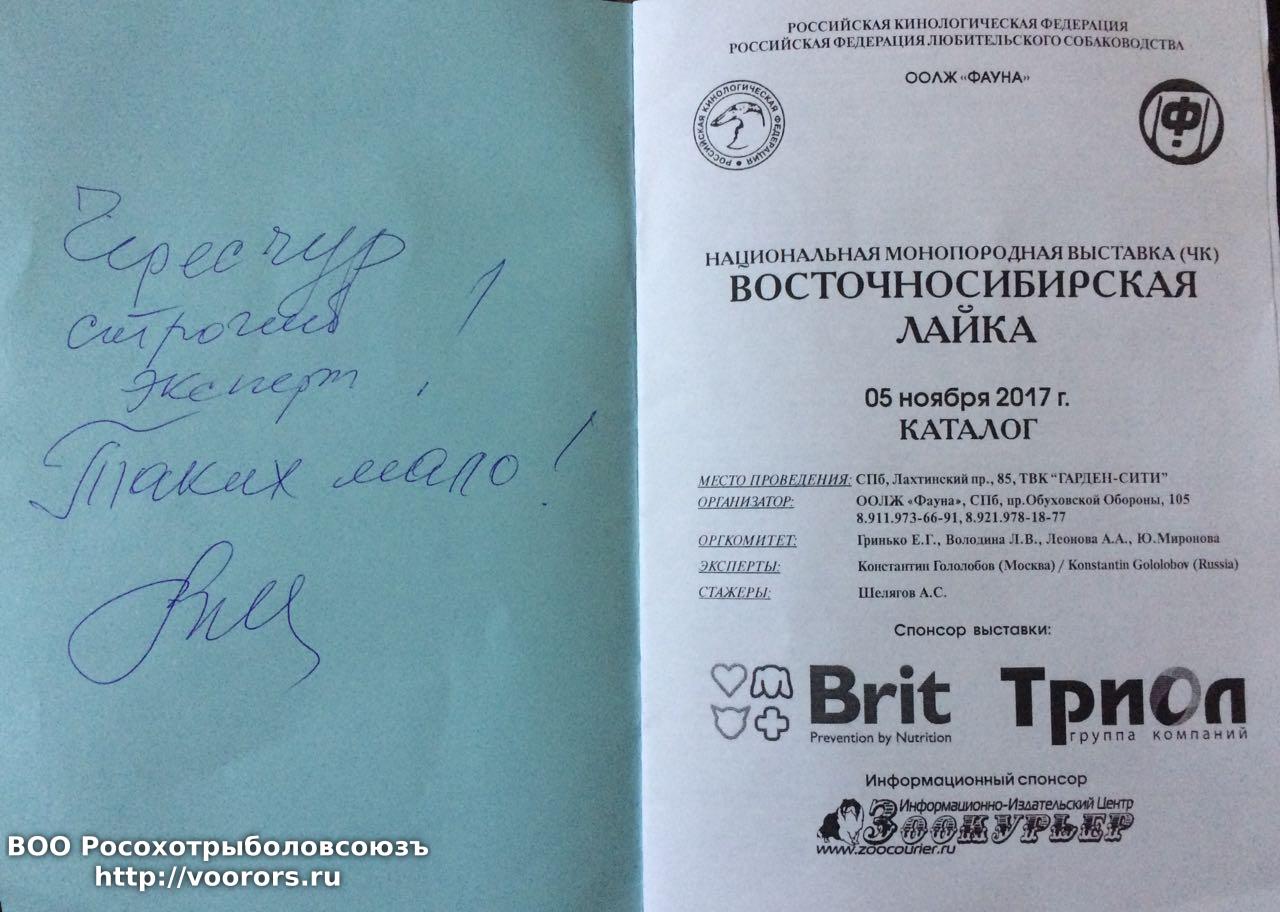 Чересчур
строгий !
эксперт
Таких мало!
РОССИЙСКАЯ КИНОЛОГИЧЕСКАЯ ФЕДЕРАЦИЯ
РОССИЙСКАЯ ФЕДЕРАЦИЯ ЛЮБИТЕЛЬСКОГО СОБАКОВОДСТВА
ООЛЖ «ФАУНА»
РОССИЙСКАЯ КИНОЛОГИЧЕСКАЯ ФЕДЕРАЦИЯ
Ф
НАЦИОНАЛЬНАЯ МОНОПОРОДНАЯ ВЫСТАВКА (ЧК)
ВОСТОЧНОСИБИРСКАЯ
ЛАЙКА
05 ноября 2017 г.
КАТАЛОГ
МЕСТО ПРОВЕДЕНИЯ: СПб, Лахтинский пр., 85, ТВК “ГАРДЕН-СИТИ”
ОРГАНИЗАТОР: ООЛЖ «Фауна», СПб, пр.Обуховской Обороны, 105
8.911.973-66-91, 8.921.978-18-77
ОРГКОМИТЕТ: Гринько Е.Г., Володина Л.В., Леонова А.А., Ю.Миронова
ЭКСПЕРТЫ: Константин Гололобов (Москва) / Konstantin Gololobov (Russia)
СТАЖЕРЫ: Шелягов А.С.
Спонсор выставки:
Brit
Prevention by Nutrition
Триол
группа компаний
Информационный спонсор
Информационно-Издательский Центр
ЗООКУРЬЕР
www.zoocourier.ru
ВОО Росохотрыболовсоюзъ
http://voorors.ru